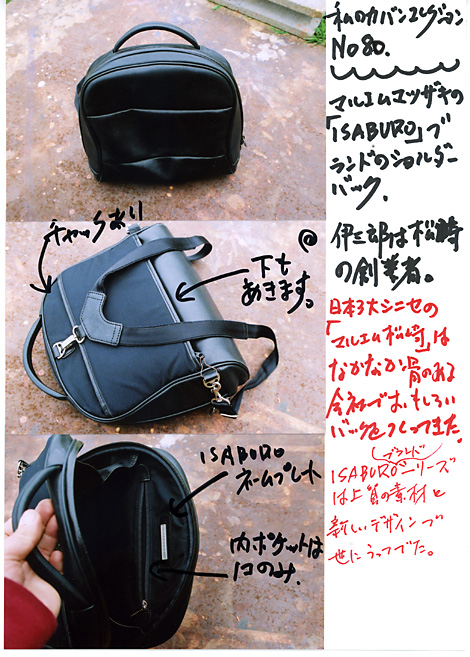 私のカバンコレクション
No80.
マルエムマツザキの
「ISABURO」ブ
ランドのショルダー
バック.
伊三郎は松崎
の創業者。
日本3大シニセの
「マルエム松崎」は
なかなか骨のある
会社でおもしろい
バックをつくってきた.
ブランド
ISABUROシリーズ
は上質の素材と
新しいデザインで
世にうってでた。
チャックあり
@
下も
あきます。
ISABURO
ネームプレート
内ポケットは
1コのみ.